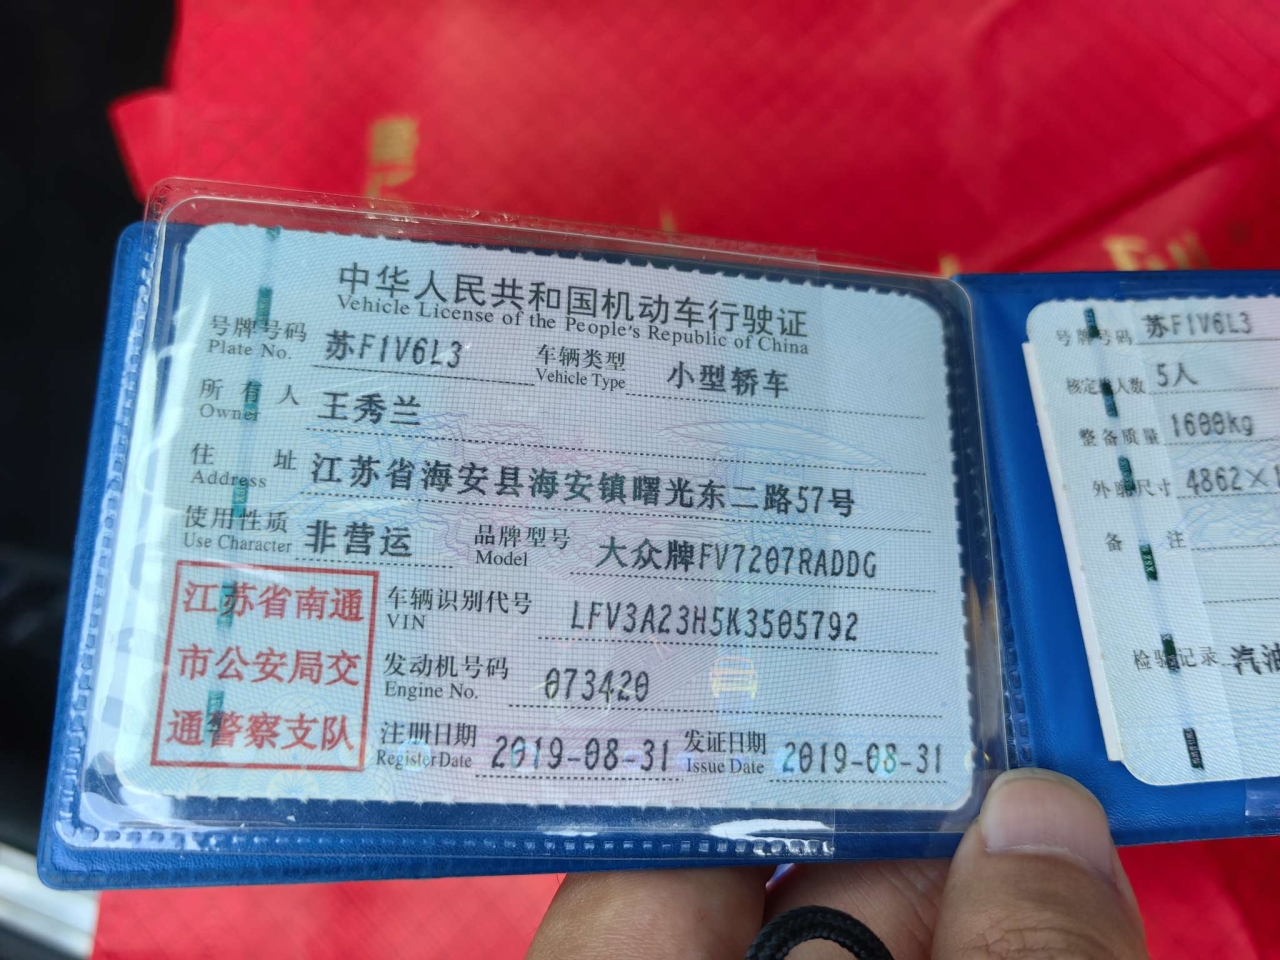 中华人民共和国机动车行驶证
Vehicle License of the People's Republic of China
号牌号码 苏F1V6L3 车辆类型 小型轿车
Plate No. Vehicle Type
所有人 王秀兰
Owner
住址 江苏省海安县海安镇曙光东二路57号
Address
使用性质 非营运 品牌型号 大众牌FV7207RADDG
Use Character Model
江苏省南通
市公安局交
通警察支队
车辆识别代号 LFV3A23H5K3505792
VIN
发动机号码 073420
Engine No.
注册日期 2019-08-31 发证日期 2019-08-31
Register Date Issue Date
号牌号码 苏F1V6L3
核定载人数 5人
整备质量 1600kg
外廓尺寸 4862×1
备注
检验记录 汽油